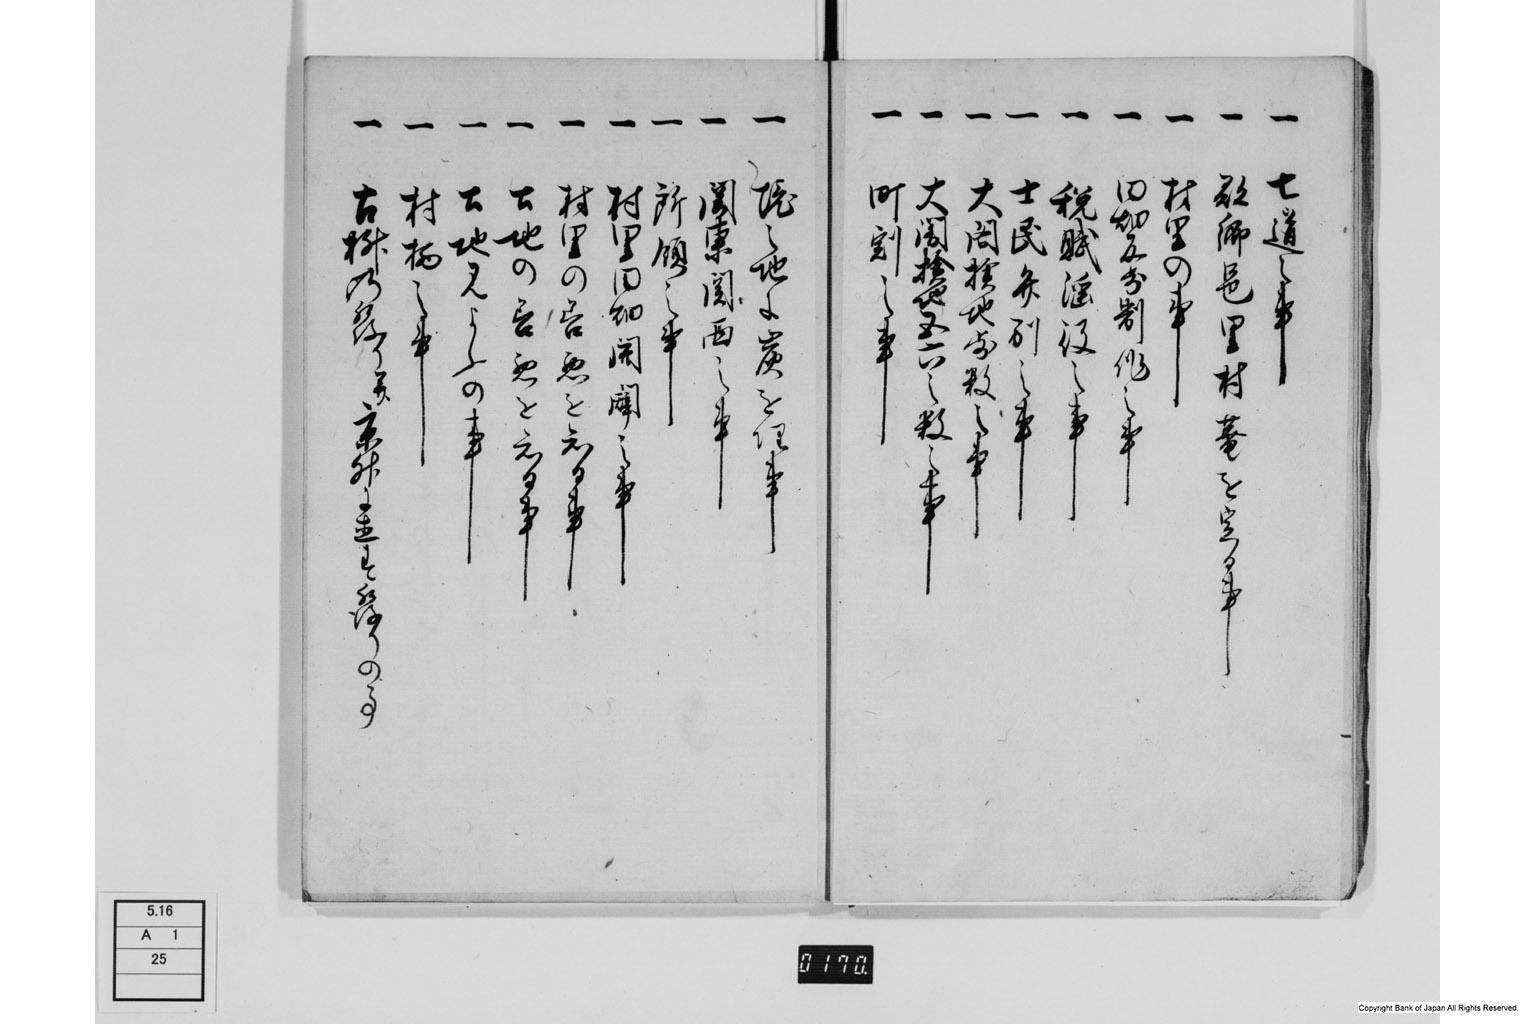 一 七道之事
一 郡郷邑里村菴を定る事
一 村里の事
一 田畑反歩制作之事
一 税賦徭役之事
一 士民弁別之事
一 大閤検地歩数之事
一 大閤検地五六之数之事
一 町割之事
一 境之地に炭を埋事
一 関東関西之事
一 所領之事
一 村里田畑開闢之事
一 村里の善悪を知る事
一 土地の善悪を知る事
一 土地見やうの事
一 村柄之事
一 古桝乃発り并京升
5.16
A 1
25
0170.
Copyright Bank of Japan All Rights Reserved.